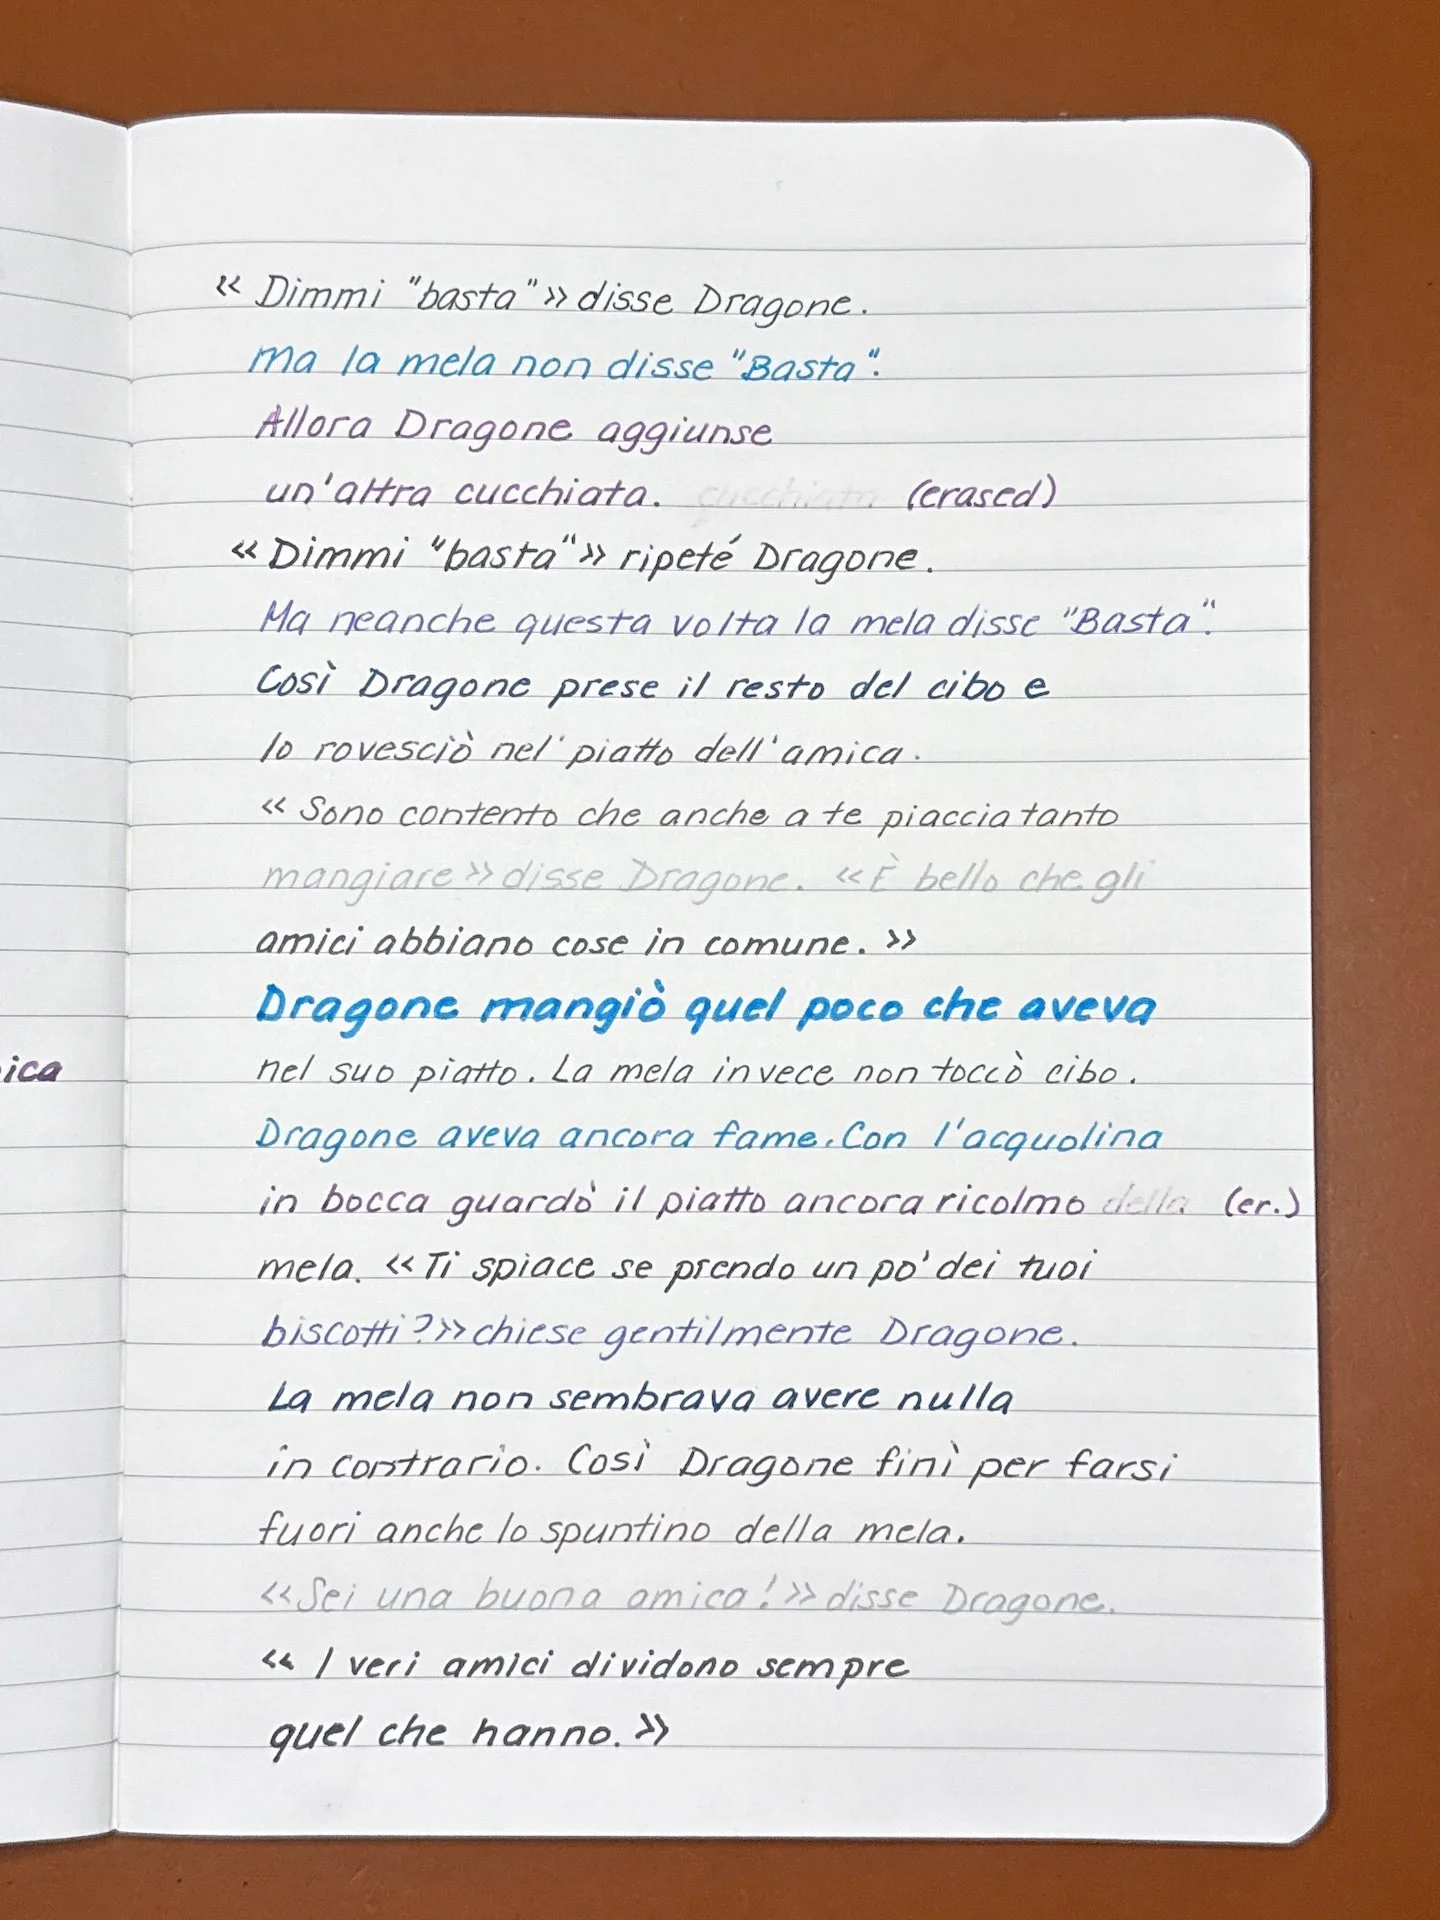 « Dimmi "basta"» disse Dragone.
Ma la mela non disse "Basta".
Allora Dragone aggiunse
un'altra cucchiata. cucchiata (erased)
« Dimmi "basta"» ripeté Dragone.
Ma neanche questa volta la mela disse "Basta".
Così Dragone prese il resto del cibo e
lo rovesciò nel' piatto dell'amica.
« Sono contento che anche a te piaccia tanto
mangiare» disse Dragone. «È bello che gli
amici abbiano cose in comune. »
Dragone mangiò quel poco che aveva
ica
nel suo piatto. La mela invece non toccò cibo.
Dragone aveva ancora fame. Con l'acquolina
in bocca guardò il piatto ancora ricolmo della (er.)
mela. «Ti spiace se prendo un po' dei tuoi
biscotti?» chiese gentilmente Dragone.
La mela non sembrava avere nulla
in contrario. Così Dragone finì per farsi
fuori anche lo spuntino della mela.
«Sei una buona amica!» disse Dragone.
« I veri amici dividono sempre
quel che hanno. »